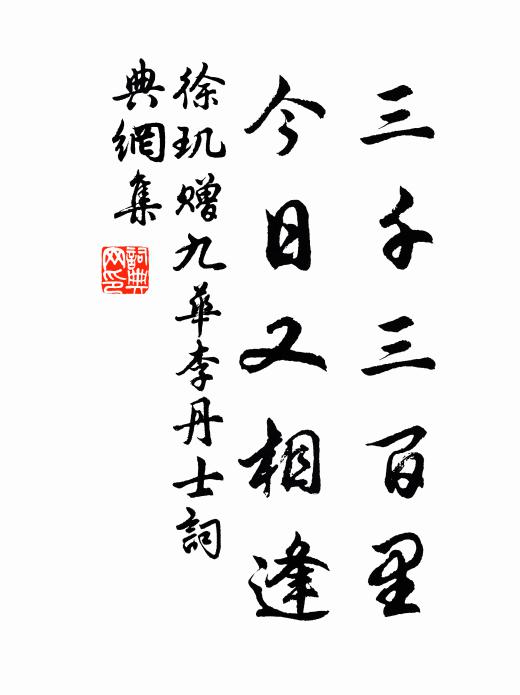 三千三百里
今日又相逢
徐玑贈九華李丹士詞
典網集
詞典
网印